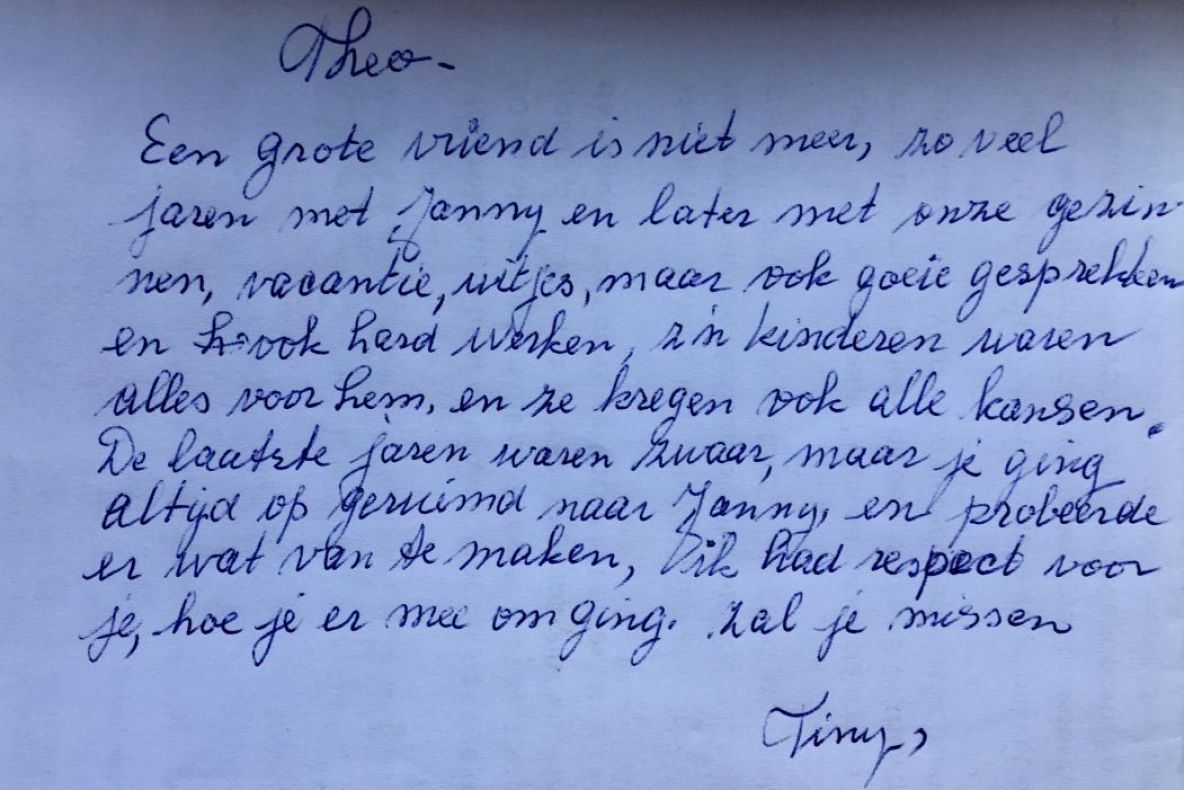 Theo-
Een grote vriend is niet meer, zo veel
jaren met Janny en later met onze gezin-
nen, vacantie, uitjes, maar ook goeie gesprekken
en ook hard werken, z'n kinderen waren
alles voor hem, en ze kregen ook alle kansen.
De laatste jaren waren zwaar, maar je ging
altijd op geruimd naar Janny, en probeerde
er wat van te maken, ik had respect voor
je, hoe je er mee om ging. zal je missen
Tiny,